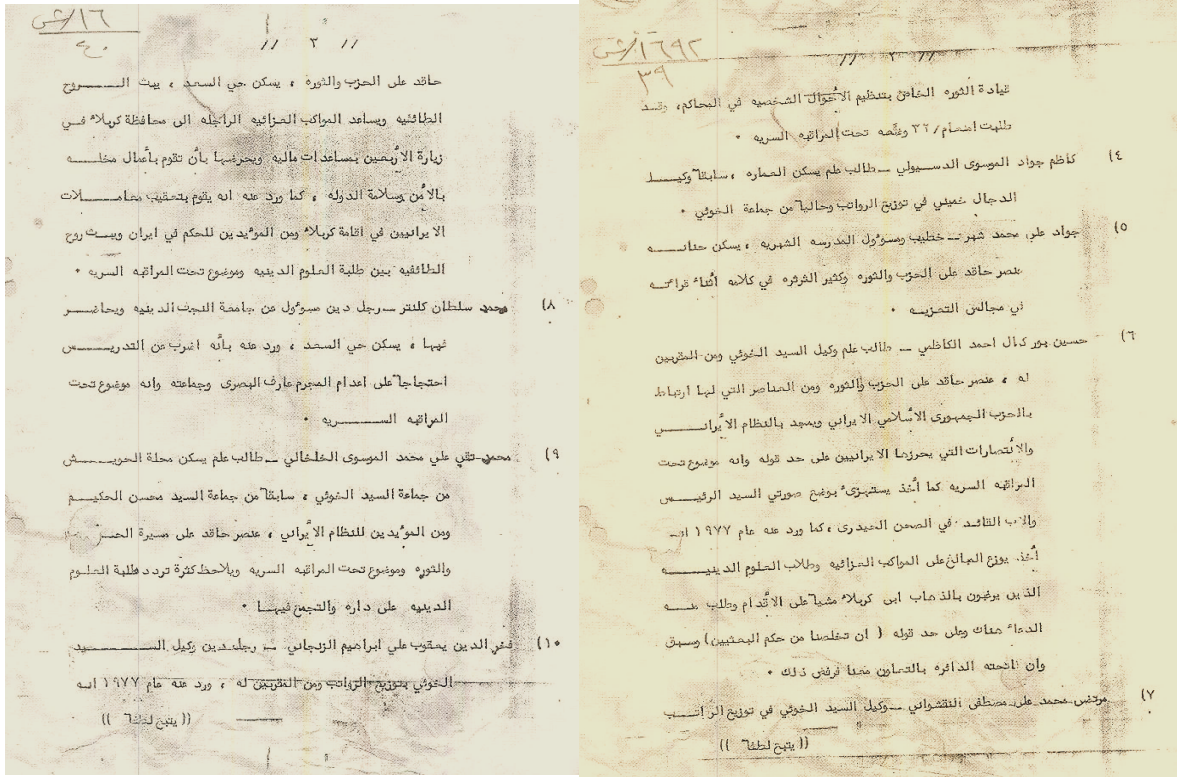 ١٦٩٢/ش
٣٩
// ٢ //
قيادة الثوره الخاص بتنظيم الأحوال الشخصيه في المحاكم، وقد
طلبت اضمام/٣٢ وضعه تحت المراقبه السريه .
٤) كاظم جواد الموسوى الدسبولي ــ طالب علم يسكن العماره ، سابقا وكيل
الدجال خميني في توزيع الرواتب وحاليا من جماعة الخوئي .
٥) جواد علي محمد شبر ــ خطيب ومسوؤل المدرسه الشبريه ، يسكن حنانــه
عنصر حاقد على الحزب والثوره وكثير الثرثره في كلامه أثناء قرائتــه
في مجالس التعزيــه .
٦) حسين بور كمال احمد الكاظمي ــ طالب علم وكيل السيد الخوئي ومن المقربين
له ، عنصر حاقد على الحزب والثوره ومن العناصر التي لها ارتباط
بالحزب الجمهورى الأسلامي الايراني ويمجد بالنظام الأيرانــــي
والأنتصارات التي يحرزها الايرانيين على حد قوله وانه موضوع تحت
المراقبه السريه كما أخذ يستهزئ بوضع صورتي السيد الرئيــس
والاب القائد في الصحن الحيدرى ، كما ورد عنه عام ١٩٧٧ انــه
أخذ يوزع المبالغ على المواكب العزائيه وطلاب العلوم الدينيــــه
الذين يرغبون بالذهاب الى كربلاء مشيا على الأقدام وطلب منــــه
الدعاء هناك وعلى حد قوله ( ان تخلصنا من حكم البعثيين) وسبق
وان فاتحته الدائره بالتعاون معنا فرفض ذلك .
٧) مرتضى محمد علي مصطفى النقشواني ــ وكيل السيد الخوئي في توزيع الراتــب
(( يتبع لطفا ))
١٦/ش
٤٠
// ٣ //
حاقد على الحزب والثوره ، يسكن حي السعد ، يبث الـــــــروح
الطائفيه ويساعد المواكب العزائيه الراجله الى محافظة كربلاء فــي
زيارة الأربعين بمساعدات ماليه ويحرضها بأن تقوم بأعمال مخلـــــه
بالأمن وسلامة الدوله ، كما ورد عنه انه يقوم بتعقيب معامـــــلات
الايرانيين في اقامة كربلاء ومن المؤيدين للحكم في ايران ويبــث روح
الطائفيه بين طلبة العلوم الدينيه وموضوع تحت المراقبه السريه .
٨) محمد سلطان كلنتر ــ رجل دين مسوؤل عن جامعة النجف الدينيه ويحاضــر
فيها ، يسكن حي السعد ، ورد عنه بأنه اضرب عن التدريـــس
احتجاجا على اعدام المجرم عارف البصرى وجماعته وانه موضوع تحت
المراقبه الســــــــريه .
٩) محمد تقي علي محمد الموسوى الخلخالي ــ طالب علم يسكن محلة الحويــــش
من جماعة السيد الخوئي ، سابقا من جماعة السيد محسن الحكيـــم
ومن المؤيدين للنظام الأيراني ، عنصر حاقد على مسيرة الحزب
والثوره وموضوع تحت المراقبه السريه ويلاحظ كثرة تردد طلبة العلـوم
الدينيه على داره والتجمع فيهــا .
١٠) فخر الدين يعقوب علي ابراهيم الزنجاني ــ رجل دين وكيل الســــــــيد
الخوئي بتوزيع الرواتب ومن المقربين له ، ورد عنه عام ١٩٧٧ انــه
(( يتبع لطفا ))